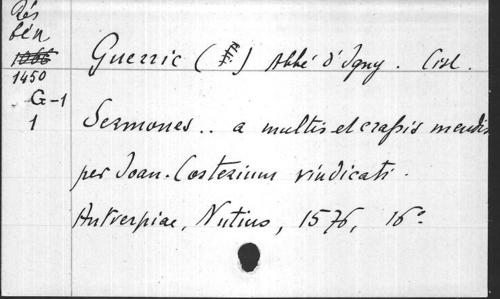 Rés
bén
1066
1450
G-1
1
Guerric ( ) Abbé d'Igny. Cist.
Sermones.. a multis et crassis mendis
per Joan. Costerium vindicati.
Antverpiae, Nutius, 1576, 16°